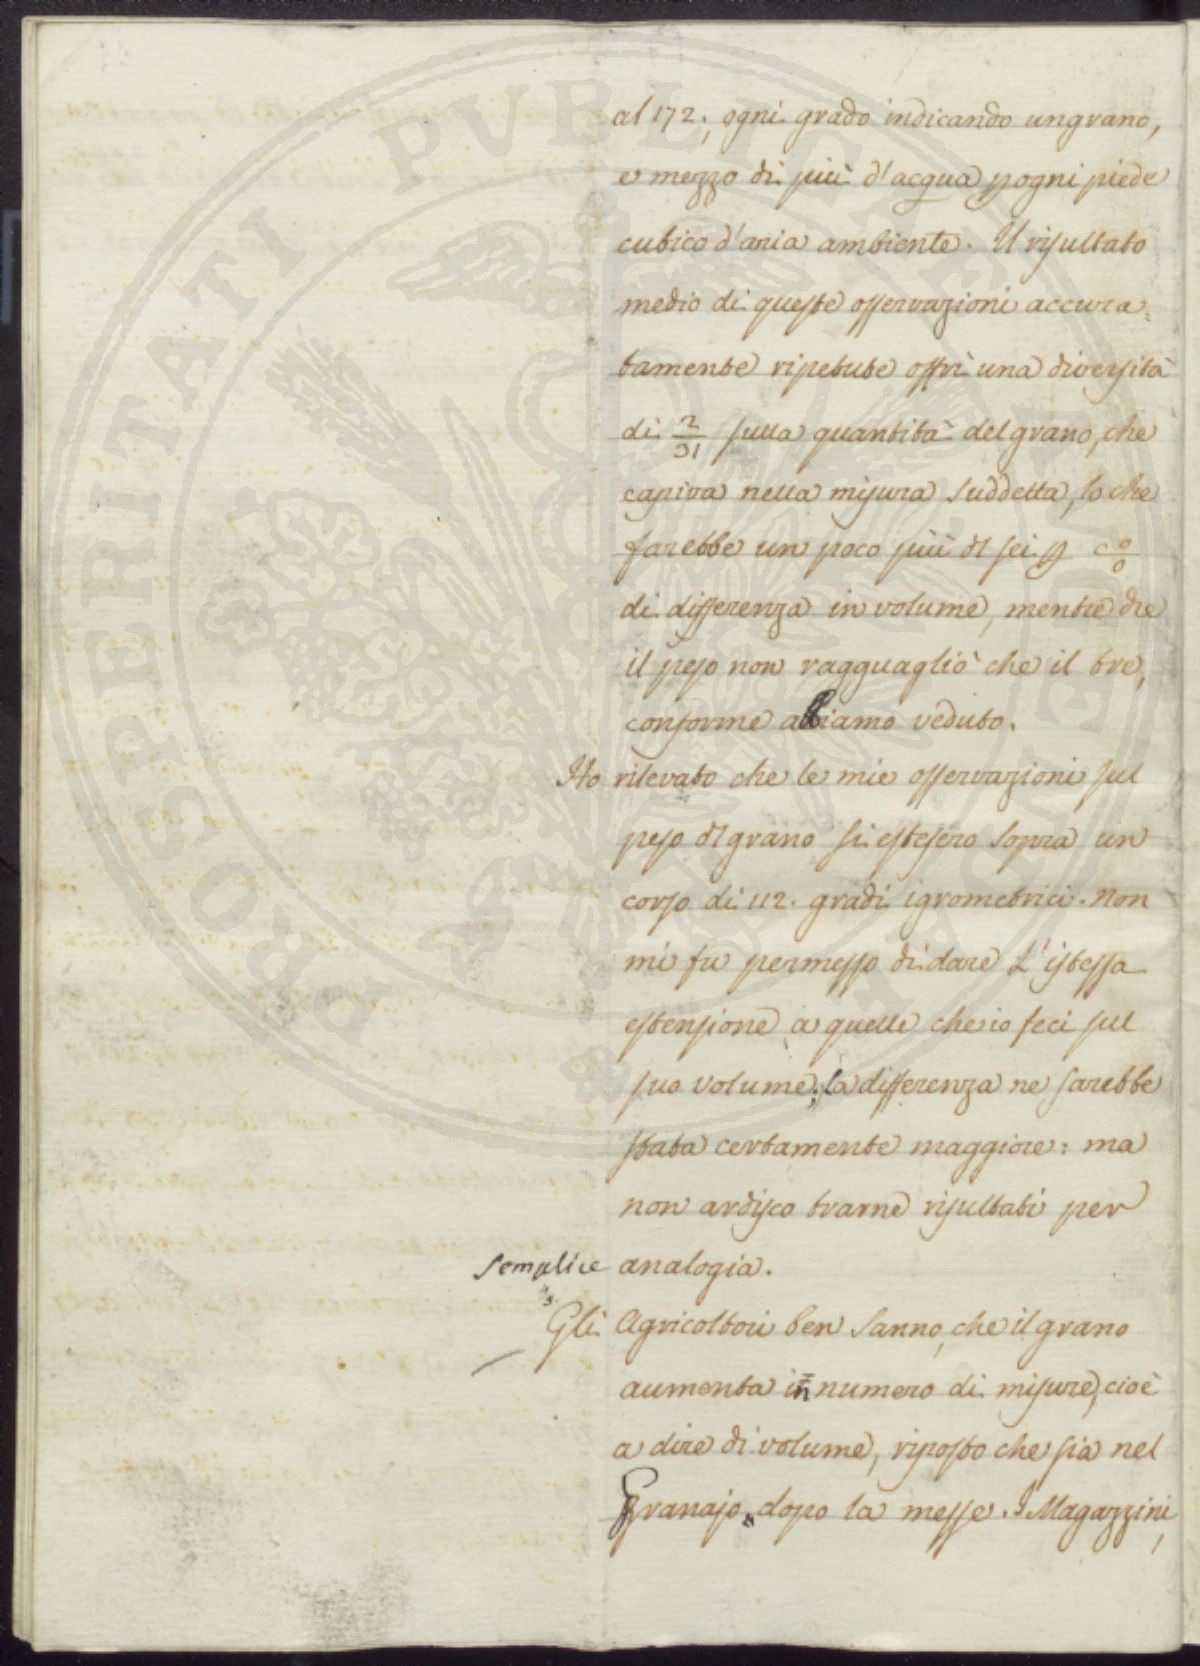 PROSPERITATI PVBLICAE AVGENDAE
al 172., ogni grado indicando un grano,
e mezzo di più d'acqua p ogni piede
cubico d'aria ambiente. Il risultato
medio di queste osservazioni accura=
tamente ripetute offrì una diversità
di 2/31 sulla quantità del grano, che
capiva nella misura suddetta, lo che
sarebbe un poco più dl sei p c%
di differenza in volume, mentre che
il peso non ragguagliò che il tre,
conforme abbiamo veduto.
Ho rilevato che le mie osservazioni sul
peso dl grano si estesero sopra un
corso di 112. gradi igrometrici. Non
mi fu permesso di dare l'istessa
estensione a quelle che io feci sul
suo volume; la differenza ne sarebbe
stata certamente maggiore: ma
non ardisco trarne risultati per
semplice analogia.
Gli Agricoltori ben sanno, che il grano
aumenta in numero di misure, cioè
a dire di volume, riposto che sia nel
Granajo, dopo la messe. I Magazzini,